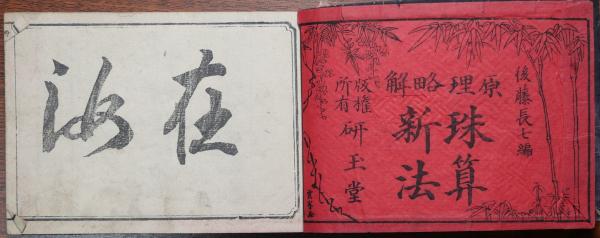 後藤長七編
原理略解
珠算
新法
版権
所有
研玉堂
在
汝